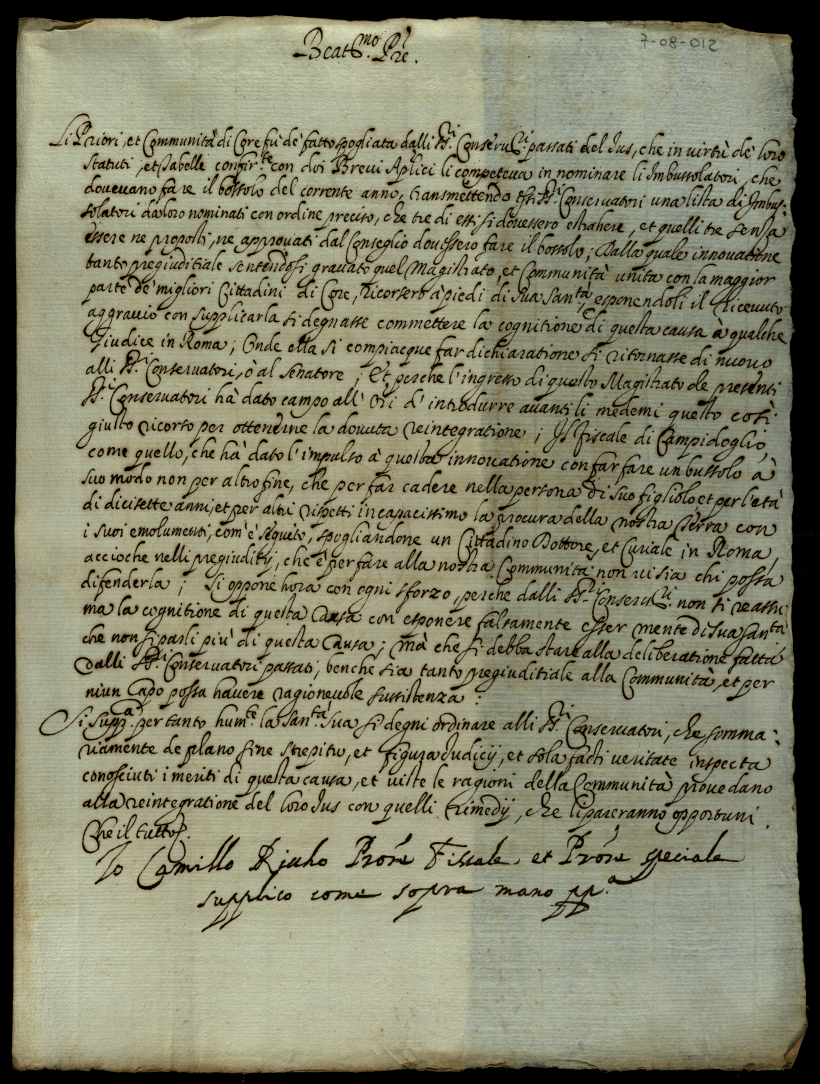 7-08-012
Beat.mo Pre.
Li Priori, et Communità di Core fù de fatto spogliata dalli SS.ri Conseru.ri passati del Jus, che in virtù de loro
statuti, et tabelle confir.te con doi Breui Aplici li competeua in nominare li Imbussolatori, che
doueuano fare il bossolo del corrente anno, transmettendo essi SS.ri Conseruatori una lista di Imbus-
solatori da loro nominati con ordine preciso, che tre di essi si douessero estrahere, et quelli tre senza
essere ne proposti, ne approuati dal Conseglio douessero fare il bossolo; Dalla quale innouatione
tanto pregiuditiale sentendosi grauato quel Magistrato, et Communità unita con la maggior
parte de migliori Cittadini di Core, ricorsero à piedi di Sua San.tà, esponendoli il riceuuto
aggrauio con supplicarla si degnasse commettere la cognitione di questa causa à qualche
Giudice in Roma; Onde ella si compiacque far dichiaratione si ritornasse di nuouo
alli SS.ri Conseruatori, ò al Senatore; Et perche l'ingresso di questo Magistrato de presenti
SS.ri Conseruatori hà dato campo all' Ori d' introdurre auanti li medemi questo così
giusto ricorso per ottenerne la douuta reintegratione; Il fiscale di Campidoglio,
come quello, che hà dato l'impulso à questa innouatione con far fare un bussolo à
suo modo non per altro fine, che per far cadere nella persona di suo figliolo et per l'età
di dicisette anni, et per altri rispetti incapacissimo la procura della nostra Terra con
i suoi emolumenti, com' è seguito, spogliandone un Cittadino Dottore, et Curiale in Roma,
accioche nelli pregiuditij, che è per fare alla nostra Communità non ui sia chi possa
difenderla; Si oppone hora con ogni sforzo, perche dalli SS.ri Conseru.ri non si reassu
ma la cognitione di questa Causa con esponere falsamente esser mente di Sua San.tà
che non si parli più di questa Causa; mà che si debba stare alla deliberatione fatta
dalli SS.ri Conseruatori passati, benche sia tanto pregiuditiale alla Communità, et per
niun Capo possa hauere ragioneuole sussistenza:
Si supp.ca per tanto hum.te la San.tà Sua si degni ordinare alli SS.ri Conseruatori, che somma:
riamente de plano sine strepitu, et figura Judicij, et sola facti ueritate inspecta
conosciuti i meriti di questa causa, et uiste le ragioni della Communità prouedano
alla reintegratione del loro Jus con quelli rimedij, che li pareranno opportuni.
Che il tutto &.
Io Camillo Proře Fiscale, et Proře speciale
supplico come sopra mano pp.a